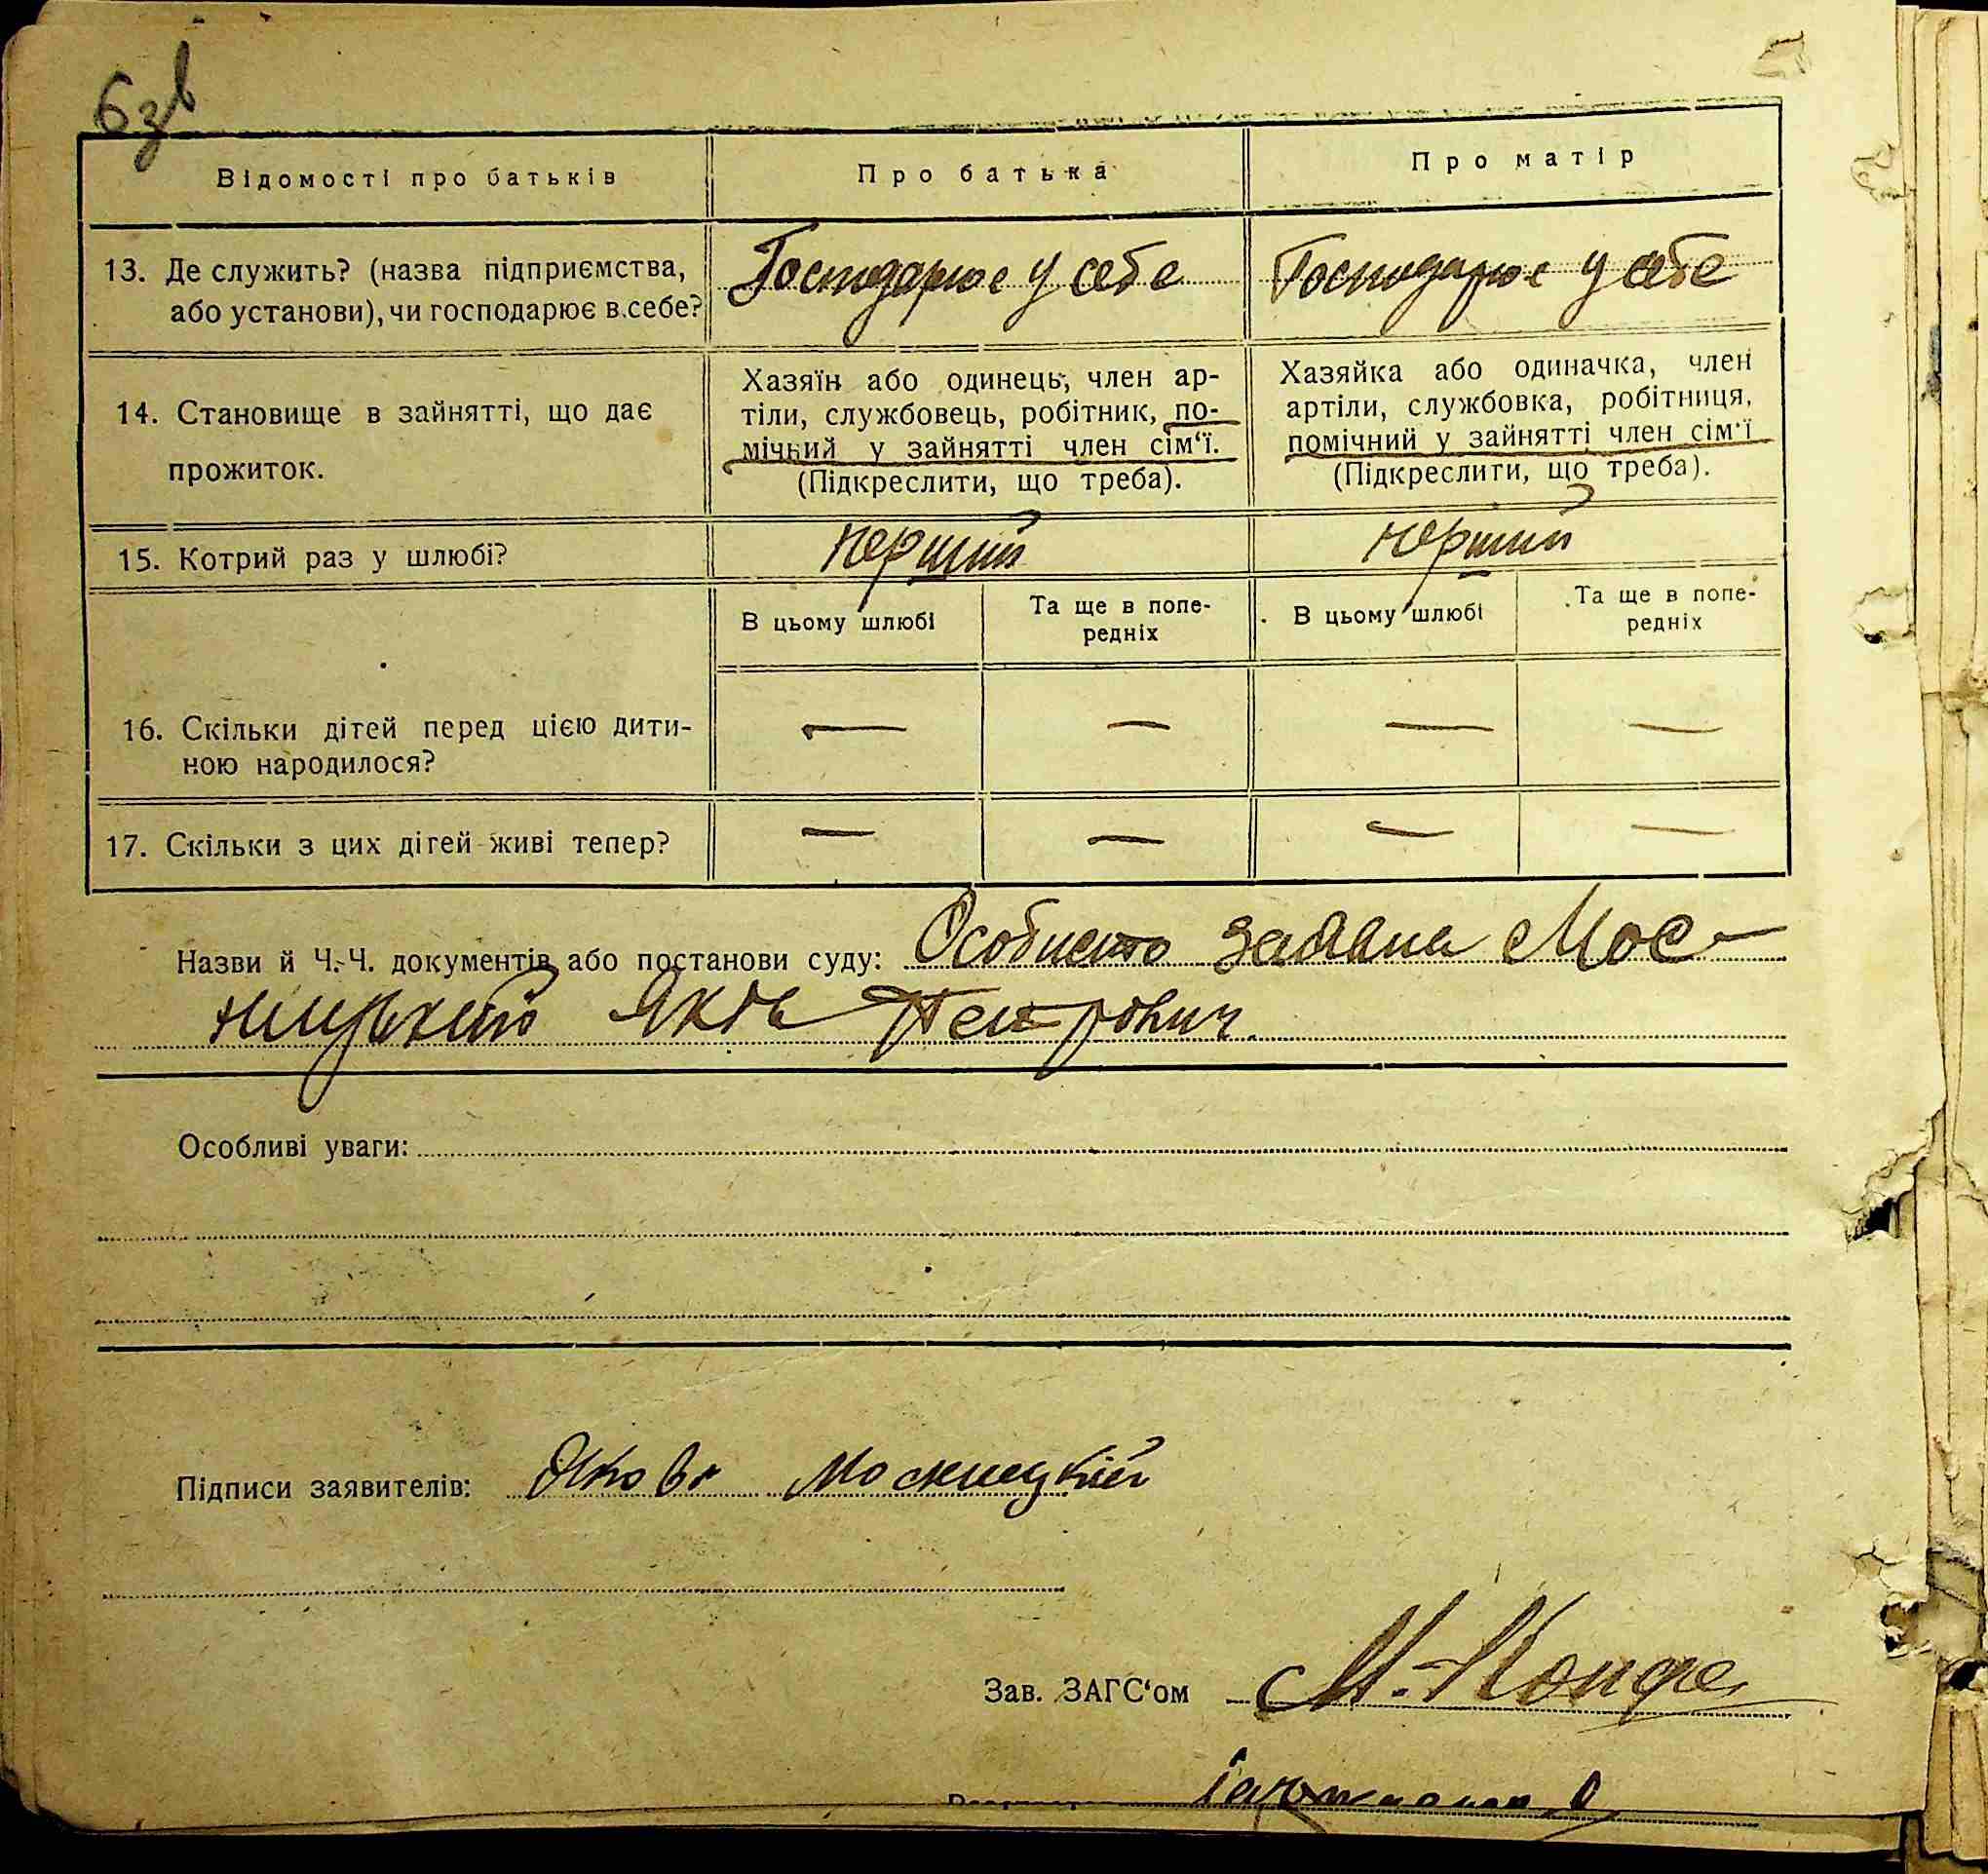 6зв
Відомості про батьків
Про батька
Про матір
13. Де служить? (назва підприємства,
або установи), чи господарює в себе?
Господарює у себе
Господарює у себе
14. Становище в зайнятті, що дає
прожиток.
Хазяїн або одинець, член ар-
тіли, службовець, робітник, по-
мічний у зайнятті член сім'ї.
(Підкреслити, що треба).
Хазяйка або одиначка, член
артіли, службовка, робітниця,
помічний у зайнятті член сім'ї
(Підкреслити, що треба).
15. Котрий раз у шлюбі?
перший
перший
В цьому шлюбі
Та ще в попе-
редніх
В цьому шлюбі
Та ще в попе-
редніх
16. Скільки дітей перед цією дити-
ною народилося?
— — — —
17. Скільки з цих дітей живі тепер?
— — — —
Назви й Ч.-Ч. документів або постанови суду: Особиста заява Мос-
ницький Яків Петрович.
Особливі уваги:
Підписи заявителів: Яковъ Мосницкій
Зав. ЗАГС'ом М.